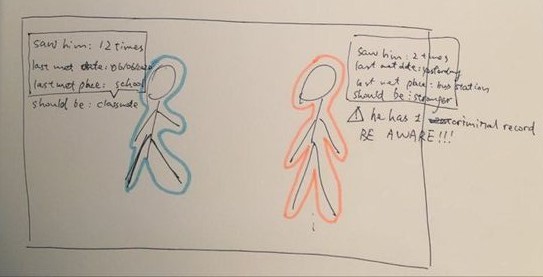 saw him: 12 times
last met date:
last met place: school
should be: classmate
saw him: 2 times
last met date: yesterday
last met place: bus station
should be: stranger
⚠ he has 1 criminal record
BE AWARE!!!